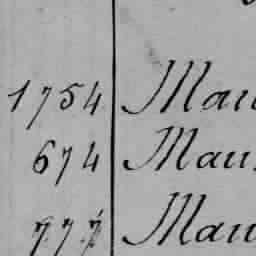 1754 Mau
674 Mau
777 Mau